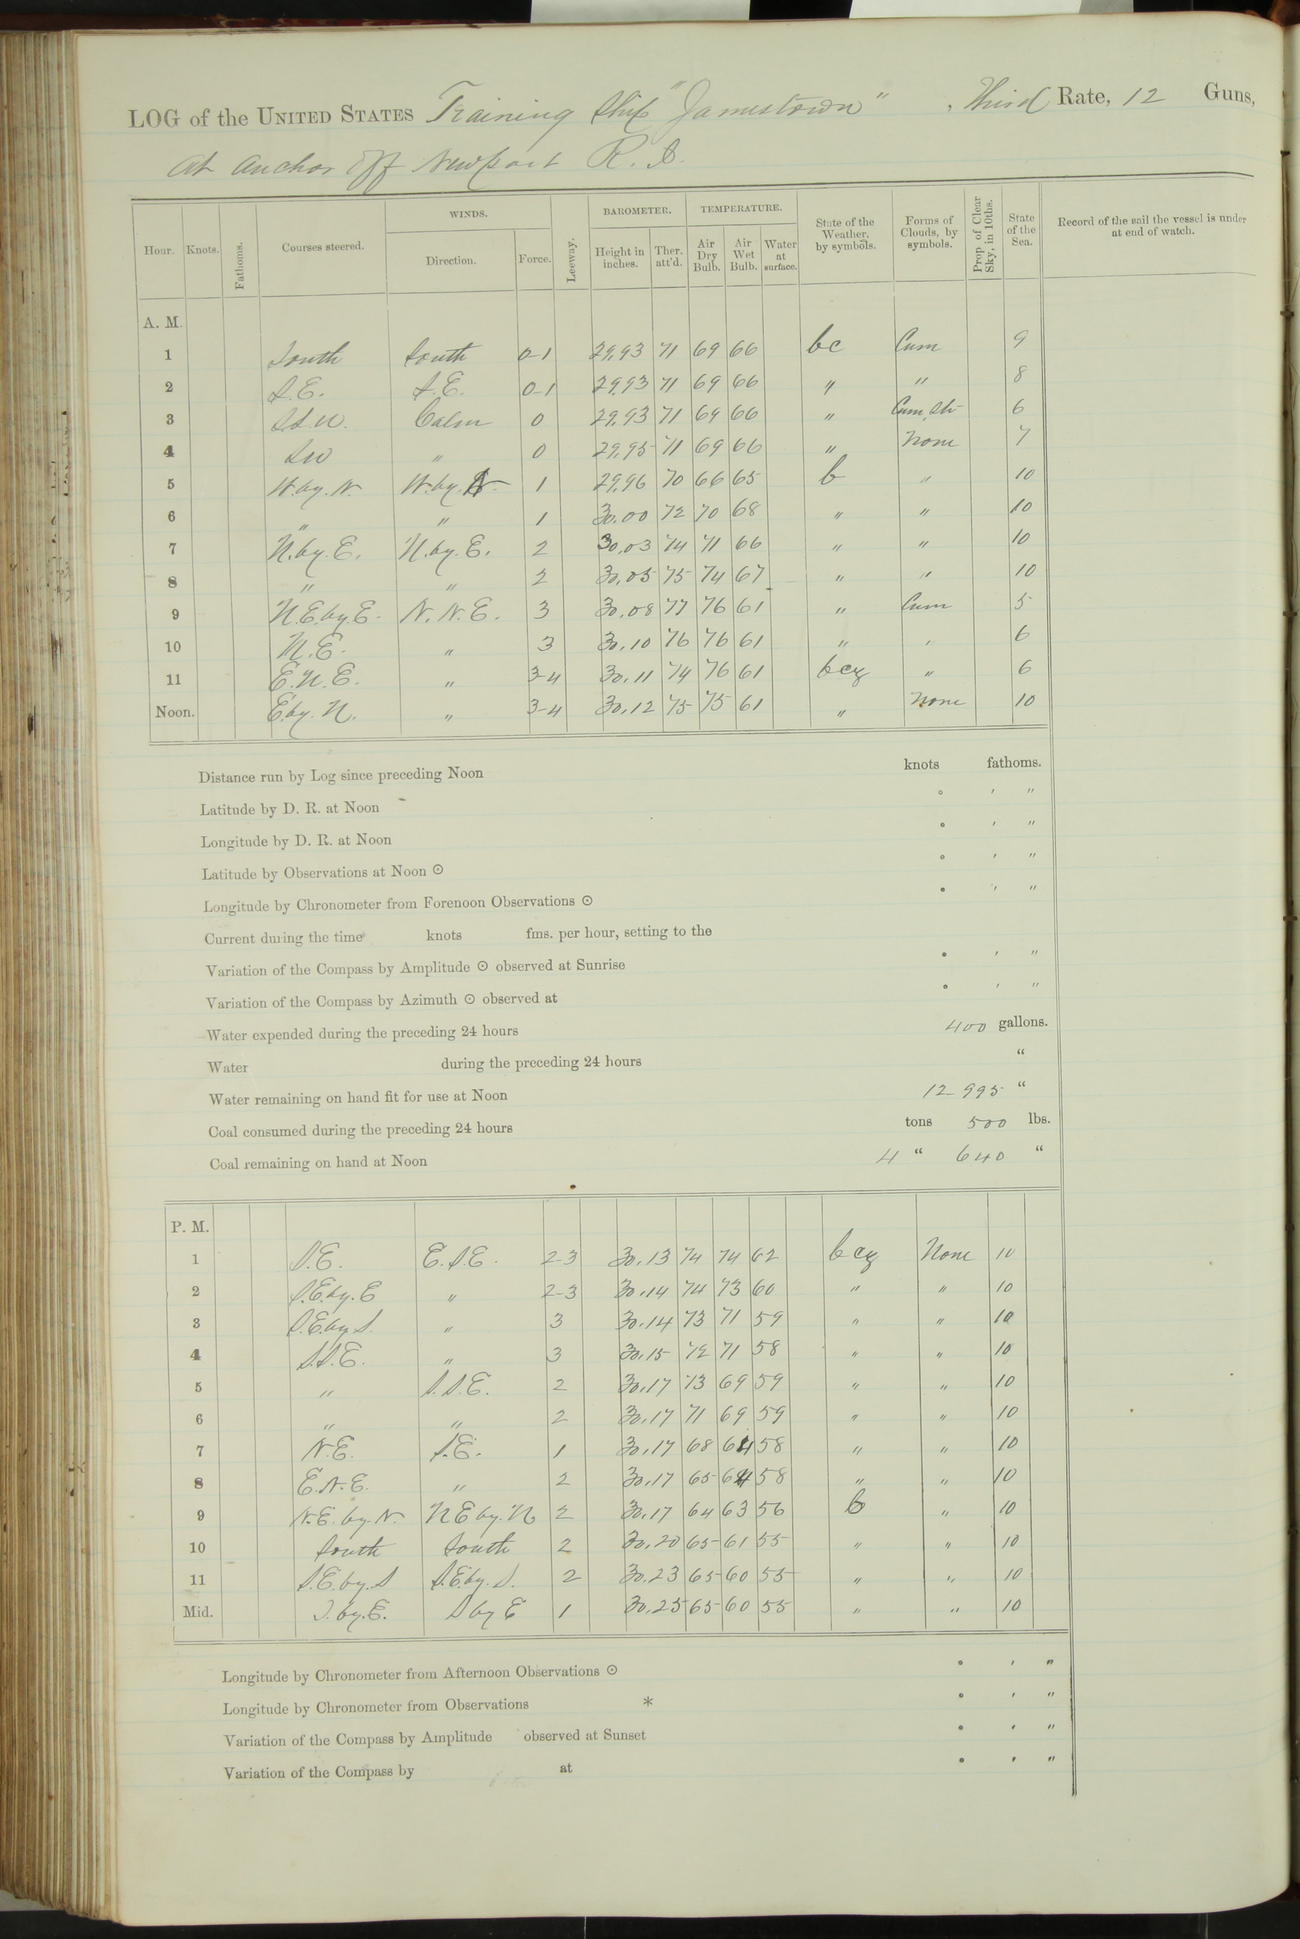 LOG of the UNITED STATES Training Ship "Jamestown", Third Rate, 12 Guns,
At anchor off Newport R. I.
Hour. Knots. Fathoms. Courses steered. WINDS. Direction. Force. Leeway. BAROMETER. Height in inches. Ther. att'd. TEMPERATURE. Air Dry Bulb. Air Wet Bulb. Water at surface. State of the Weather, by symbols. Forms of Clouds, by symbols. Prop. of Clear Sky, in 10ths. State of the Sea. Record of the sail the vessel is under at end of watch.
A. M.
1 South South 0-1 29.93 71 69 66 bc Cum 9
2 S.E. S.E. 0-1 29.93 71 69 66 " " 8
3 S.S.W. Calm 0 29.93 71 69 66 " Cum. Str 6
4 SW " 0 29.95 71 69 66 " None 7
5 W. by. N. W. by. N. 1 29.96 70 66 65 b " 10
6 " " 1 30.00 72 70 68 " " 10
7 N. by. E. N. by. E. 2 30.03 74 71 66 " " 10
8 " " 2 30.05 75 74 67 " " 10
9 N.E. by. E. N.N.E. 3 30.08 77 76 61 " Cum 5
10 N.E. " 3 30.10 76 76 61 " " 6
11 E.N.E. " 3-4 30.11 74 76 61 bcq " 6
Noon. E. by. N. " 3-4 30.12 75 75 61 " None 10
Distance run by Log since preceding Noon knots fathoms.
Latitude by D. R. at Noon ° ' "
Longitude by D. R. at Noon ° ' "
Latitude by Observations at Noon ☉ ° ' "
Longitude by Chronometer from Forenoon Observations ☉ ° ' "
Current during the time knots fms. per hour, setting to the
Variation of the Compass by Amplitude ☉ observed at Sunrise ° ' "
Variation of the Compass by Azimuth ☉ observed at ° ' "
Water expended during the preceding 24 hours 400 gallons.
Water during the preceding 24 hours "
Water remaining on hand fit for use at Noon 12 995 "
Coal consumed during the preceding 24 hours tons 500 lbs.
Coal remaining on hand at Noon 4 " 640 "
P. M.
1 S.E. E.S.E. 2-3 30.13 74 74 62 bcq None 10
2 S.E. by. E " 2-3 30.14 74 73 60 " " 10
3 S.E. by S. " 3 30.14 73 71 59 " " 10
4 S.S.E. " 3 30.15 72 71 58 " " 10
5 " S.S.E. 2 30.17 73 69 59 " " 10
6 " " 2 30.17 71 69 59 " " 10
7 N.E. S.E. 1 30.17 68 64 58 " " 10
8 E.N.E. " 2 30.17 65 64 58 " " 10
9 N.E. by. N. N E by. N 2 30.17 64 63 56 b " 10
10 South South 2 30.20 65 61 55 " " 10
11 S.E. by. S S.E. by. S. 2 30.23 65 60 55 " " 10
Mid. S. by. E. S by E 1 30.25 65 60 55 " " 10
Longitude by Chronometer from Afternoon Observations ☉ ° ' "
Longitude by Chronometer from Observations * ° ' "
Variation of the Compass by Amplitude observed at Sunset ° ' "
Variation of the Compass by at ° ' "